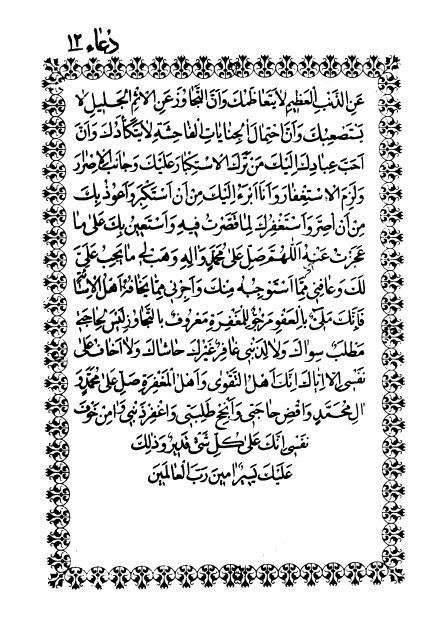 دُعَاء ١٢
عَنِ الذَّنْبِ الْعَظِيمِ لَا يَتَعَاظَمُكَ وَاَنَّ التَّجَاوُزَ عَنِ الْاِثْمِ الْجَلِيلِ لَا
يَسْتَصْعِبُكَ وَاَنَّ احْتِمَالَ الْجِنَايَاتِ الْفَاحِشَةِ لَا يَتَكَأَّدُكَ وَاَنَّ
اَحَبَّ عِبَادِكَ اِلَيْكَ مَنْ تَرَكَ الْاِسْتِكْبَارَ عَلَيْكَ وَجَانَبَ الْاِصْرَارَ
وَلَزِمَ الْاِسْتِغْفَارَ وَاَنَا اَبْرَءُ اِلَيْكَ مِنْ اَنْ اَسْتَكْبِرَ وَاَعُوذُ بِكَ
مِنْ اَنْ اُصِرَّ وَاَسْتَغْفِرُكَ لِمَا قَصَّرْتُ فِيهِ وَاَسْتَعِينُ بِكَ عَلَى مَا
عَجَزْتُ عَنْهُ اَللّٰهُمَّ صَلِّ عَلَى مُحَمَّدٍ وَّاٰلِهِ وَهَبْ لِي مَا يَجِبُ عَلَيَّ
لَكَ وَعَافِنِي مِمَّا اَسْتَوْجِبُهُ مِنْكَ وَاَجِرْنِي مِمَّا يَخَافُهُ اَهْلُ الْاِسَاءَةِ
فَاِنَّكَ مَلِيٌّ بِالْعَفْوِ مَرْجُوٌّ لِلْمَغْفِرَةِ مَعْرُوفٌ بِالتَّجَاوُزِ لَيْسَ لِحَاجَتِي
مَطْلَبٌ سِوَاكَ وَلَا لِذَنْبِي غَافِرٌ غَيْرُكَ حَاشَاكَ وَلَا اَخَافُ عَلَى
نَفْسِي اِلَّا اِيَّاكَ اِنَّكَ اَهْلُ التَّقْوَى وَاَهْلُ الْمَغْفِرَةِ صَلِّ عَلَى مُحَمَّدٍ وَّ
اٰلِ مُحَمَّدٍ وَاقْضِ حَاجَتِي وَاَنْجِحْ طَلِبَتِي وَاغْفِرْ ذَنْبِي وَاٰمِنْ خَوْفَ
نَفْسِي اِنَّكَ عَلَى كُلِّ شَيْءٍ قَدِيرٌ وَذٰلِكَ
عَلَيْكَ يَسِيرٌ اٰمِينَ رَبَّ الْعَالَمِينَ